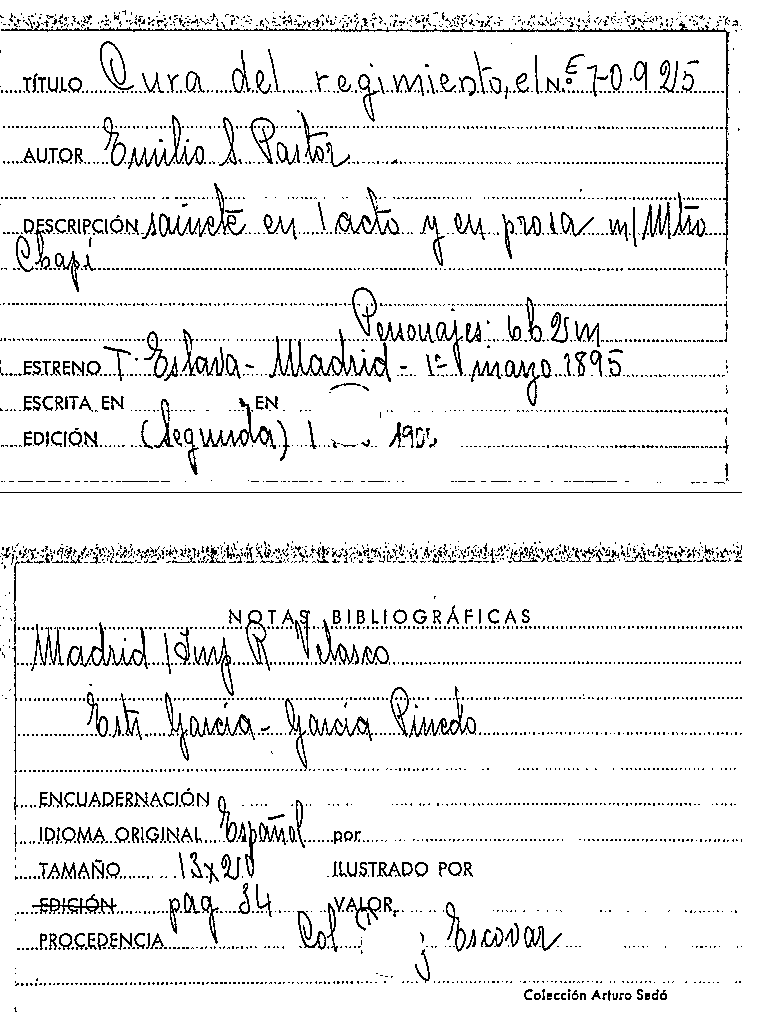 TÍTULO Cura del regimiento, el N.º E 70.925
AUTOR Emilio S. Pastor
DESCRIPCIÓN sainete en 1 acto y en prosa m/ Mtro
Chapí
Personajes: 6h 2m
ESTRENO T. Eslava - Madrid - 1º marzo 1895
ESCRITA EN EN
EDICIÓN (Segunda)
NOTAS BIBLIOGRÁFICAS
Madrid / Imp R Velasco
Estr García - García Pinedo
ENCUADERNACIÓN
IDIOMA ORIGINAL Español por
TAMAÑO 13x20 ILUSTRADO POR
EDICIÓN pag 34 VALOR
PROCEDENCIA Col j Escovar
Colección Arturo Sedó